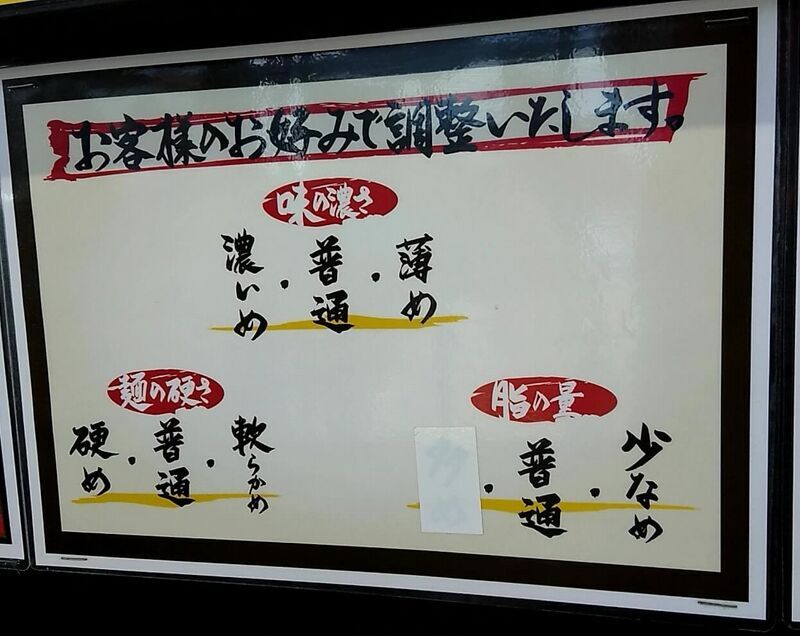 お客様のお好みで調整いたします。
味の濃さ
濃いめ・普通・薄め
麺の硬さ
硬め・普通・軟らかめ
脂の量
・普通・少なめ